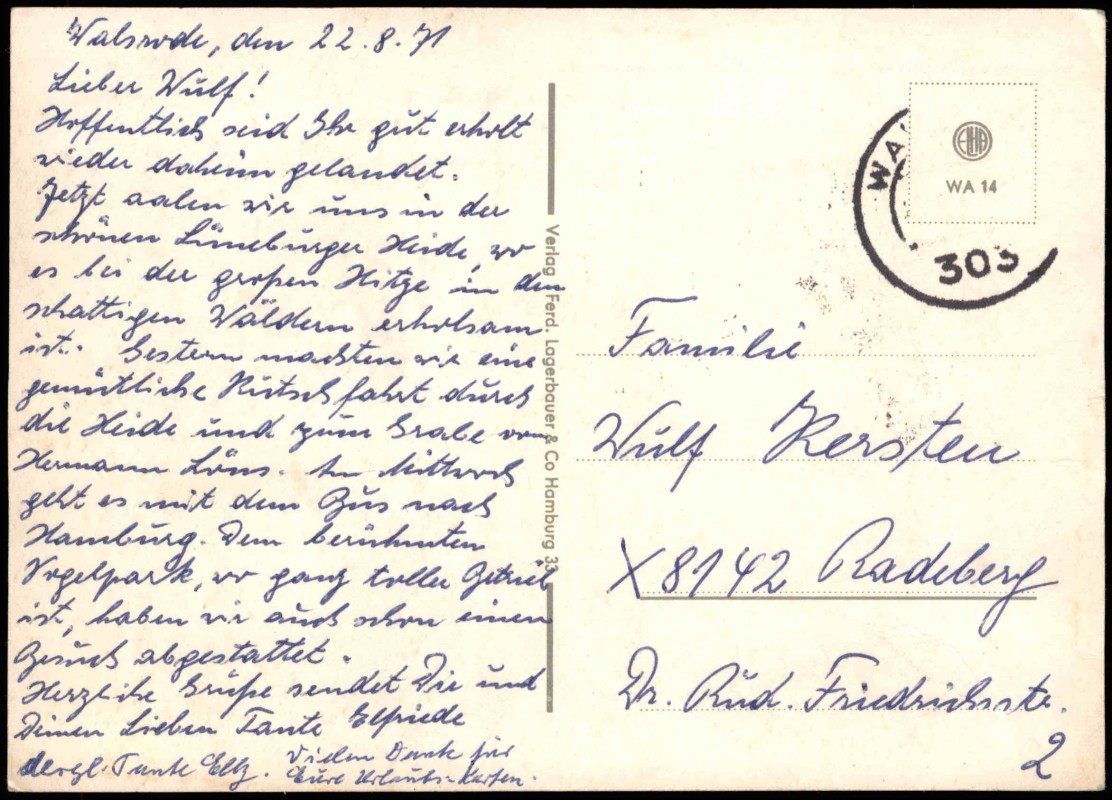 Walsrode, den 22.8.71
Lieber Wulf!
Hoffentlich seid Ihr gut erholt
wieder daheim gelandet.
Jetzt aalen wir uns in der
schönen Lüneburger Heide, wo
es bei der großen Hitze in den
schattigen Wäldern erholsam
ist. Gestern machten wir eine
gemütliche Kutschfahrt durch
die Heide und zum Grabe von
Hermann Löns. Am Mittwoch
geht es mit dem Bus nach
Hamburg. Dem berühmten
Vogelpark, wo ganz toller Betrieb
ist, haben wir auch schon einen
Besuch abgestattet.
Herzliche Grüße sendet Dir und
Deinen Lieben Tante Elfriede
dergl. Tante Elly. Vielen Dank für
Eure Urlaubs-Karten.
Verlag Ferd. Lagerbauer & Co Hamburg 33
ELHA
WA 14
WA
303
Familie
Wulf Kersten
X 8142 Radeberg
Dr. Rud. Friedrichsstr.
2